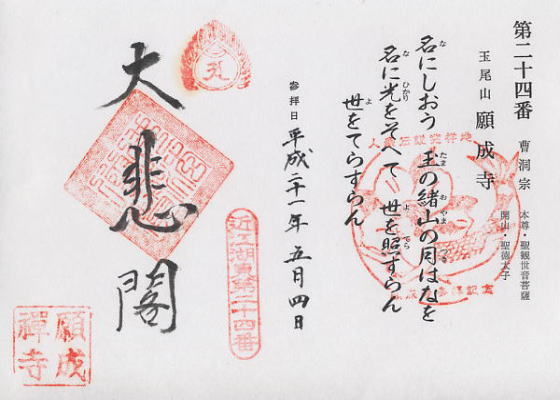 第二十四番 曹洞宗
本尊・聖観世音菩薩
開山・聖徳太子
玉尾山 願成寺
名にしおう 玉の緒山の月はなを
名に光をそへて 世を照すらん
世をてらすらん
参拝日 平成二十一年 五月四日
孔
大悲閣
近江湖東第二十四番
願成
禅寺